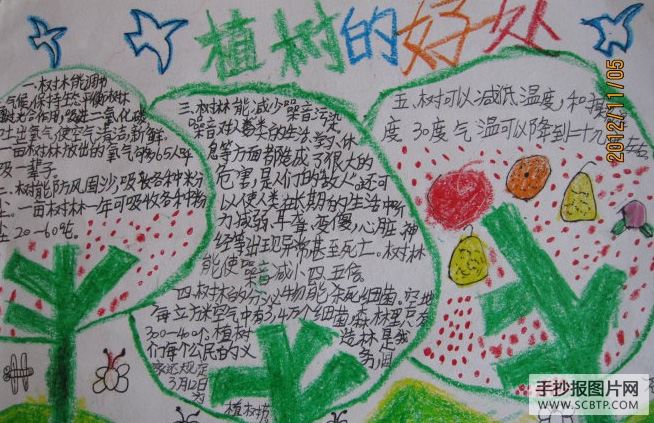 植树的好处
一.树林能调节
气候,保持生态平衡.树林
通过光合作用,吸进二氧化碳
吐出氧气,使空气清洁,新鲜.
一亩树林放出的氧气够65人呼
吸一辈子.
二.树能防风固沙,吸收各种粉
尘.一亩树林一年可吸收各种粉
尘20-60吨。
三.树林能减少噪音污染
噪音对人类的生活.学习.休
息等方面都造成了很大的
危害,是人们的故人,还可
以使人类在长期的生活中听
力减弱、耳聋、变傻,心脏,神
经等出现异常甚至死亡。树林
能使噪音减小四、五倍。
四.树木的分泌物能杀死细菌。空地
每立方米空气中有3,4万个细菌,森林里只有
300-400个.植树造林是我
们每个公民的义务,国
家还规定
3月12日
为
植树节
五.树可以减低温度,和摄
度30度气温可以降到二十九左右
2012/11/05
手抄报图片网
WWW.SCBTP.COM